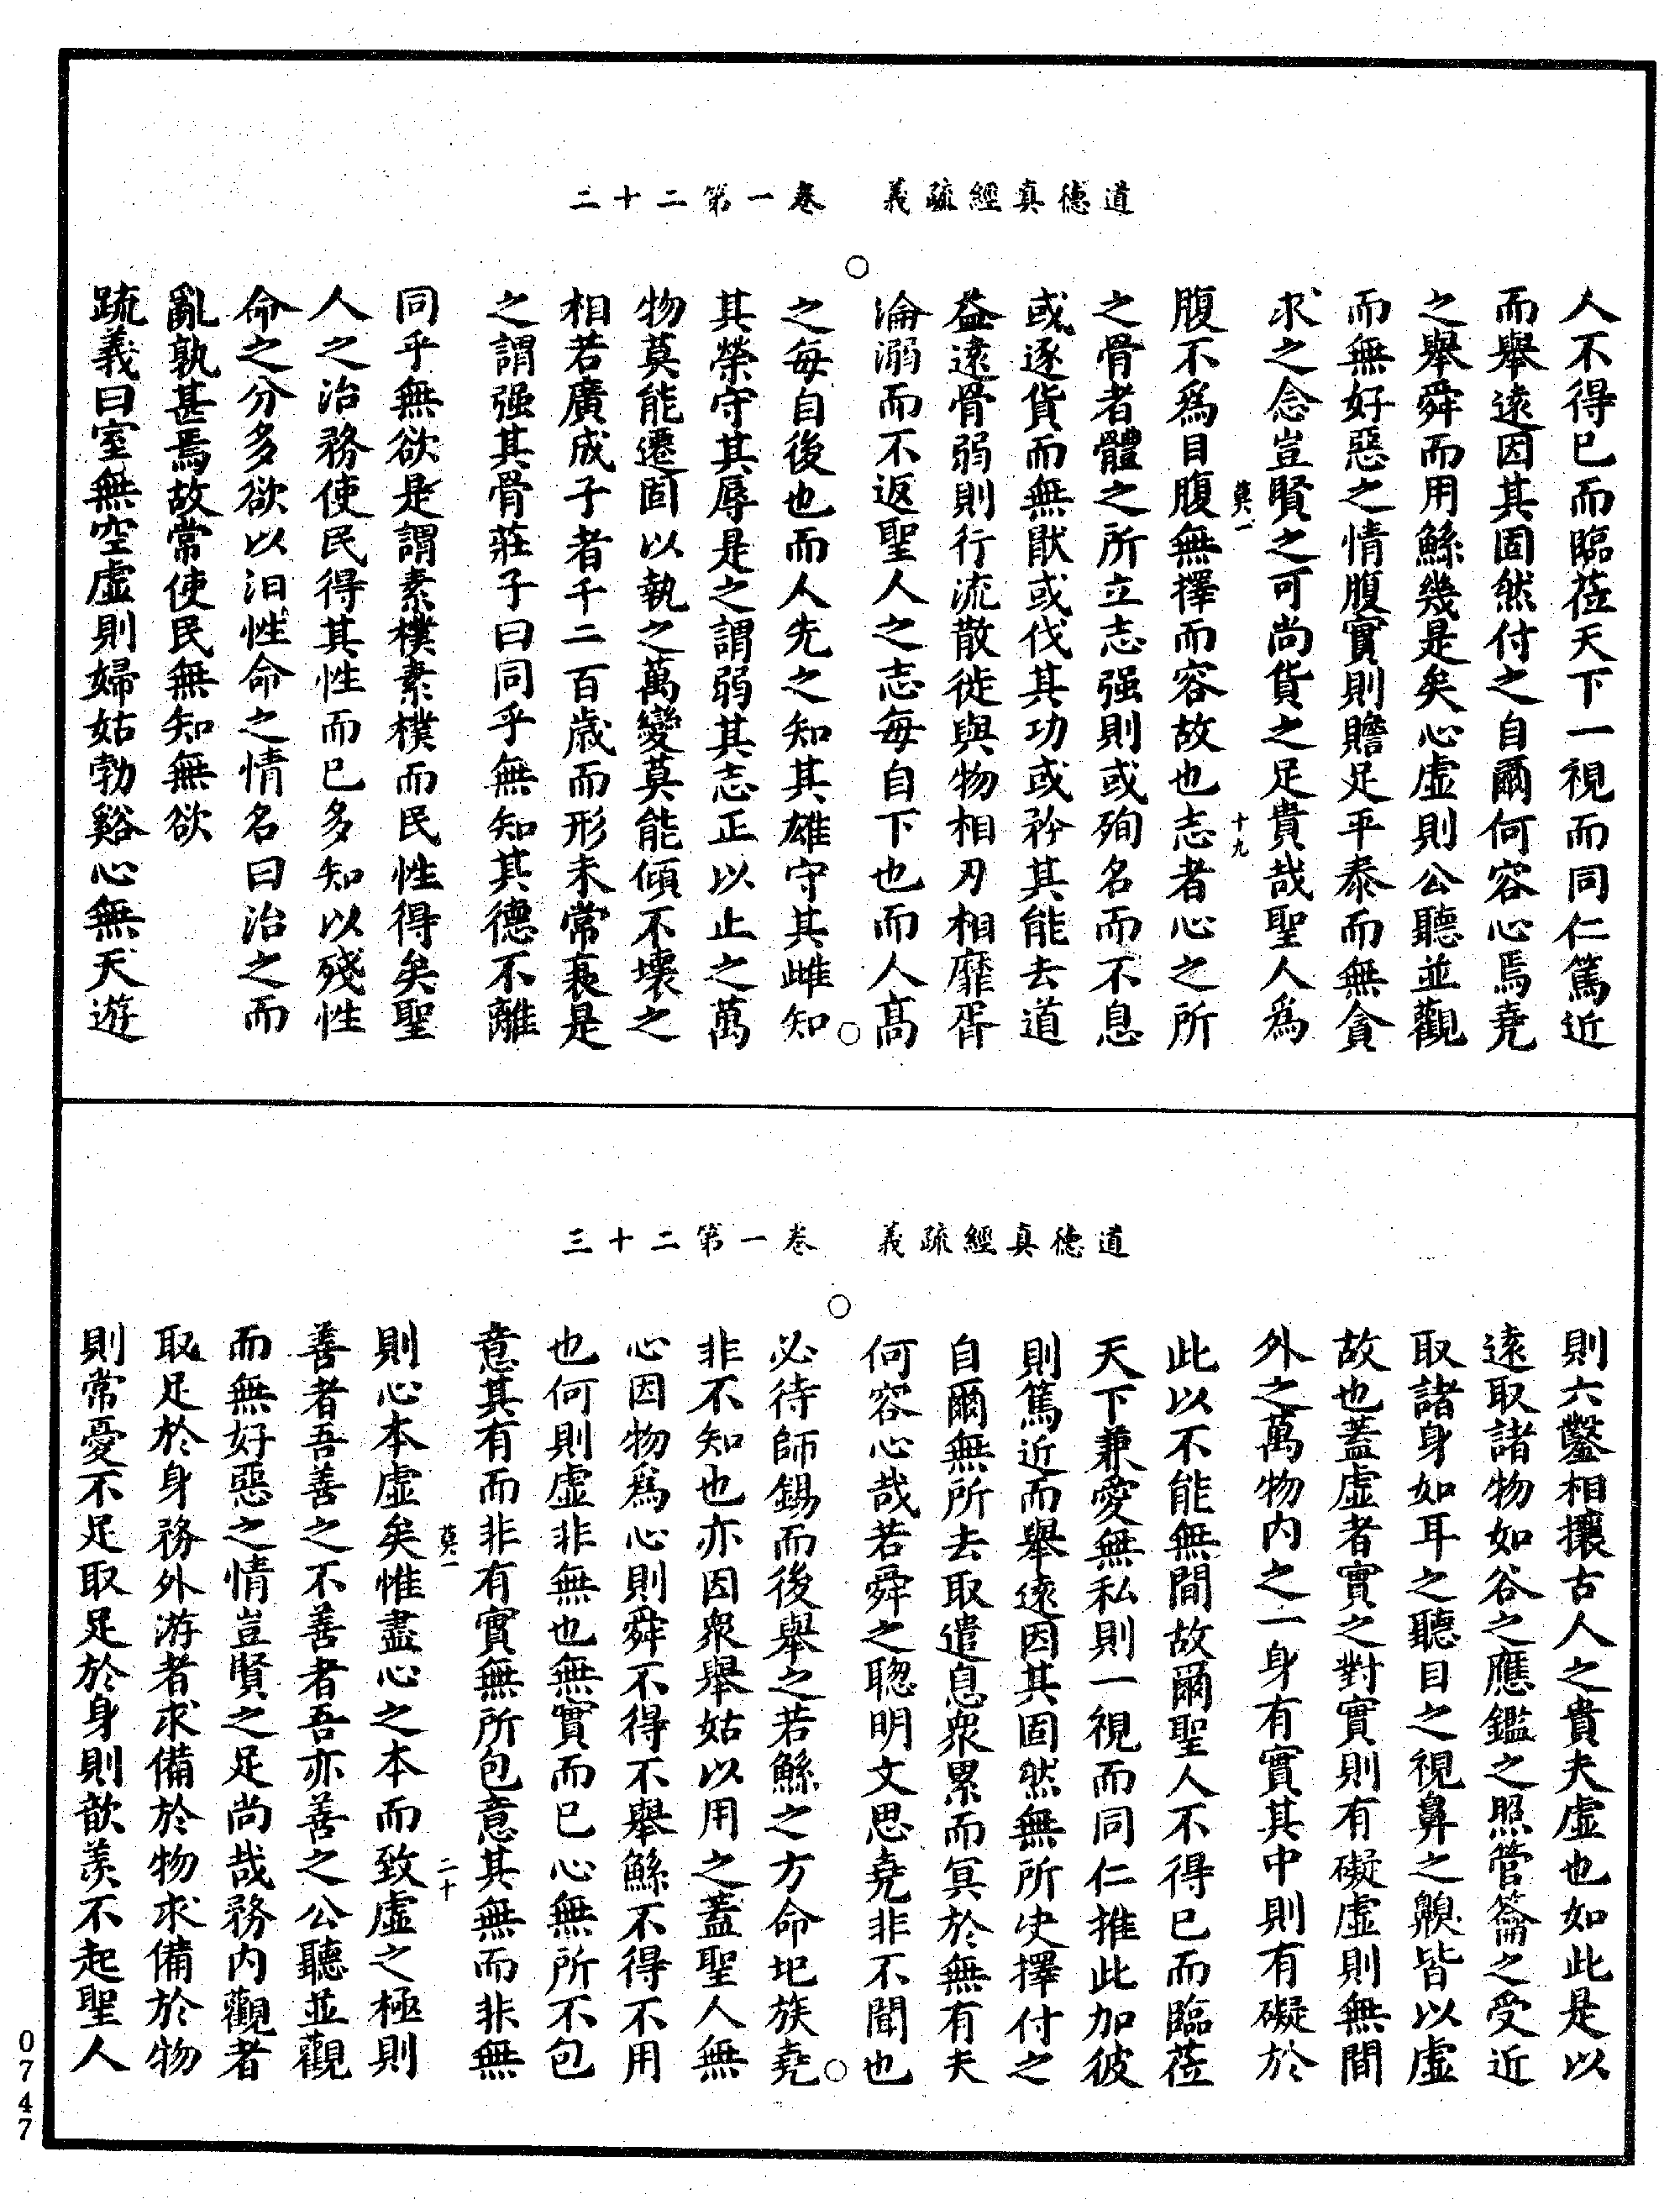 道德真經疏義　卷一第二十二
人不得已而臨莅天下一視而同仁篤近
而舉遠因其固然付之自爾何容心焉堯
之舉舜而用鯀幾是矣心虛則公聽並觀
而無好惡之情腹實則贍足平泰而無貪
求之念豈賢之可尚貨之足貴哉聖人爲
莫一　十九
腹不爲目腹無擇而容故也志者心之所
之骨者體之所立志强則或殉名而不息
或逐貨而無猒或伐其功或矜其能去道
益遠骨弱則行流散徙與物相刃相靡胥
淪溺而不返聖人之志每自下也而人高
之每自後也而人先之知其雄守其雌知
其榮守其辱是之謂弱其志正以止之萬
物莫能遷固以執之萬變莫能傾不壞之
相若廣成子者千二百歳而形未常衰是
之謂强其骨莊子曰同乎無知其德不離
同乎無欲是謂素樸素樸而民性得矣聖
人之治務使民得其性而已多知以殘性
命之分多欲以汩性命之情名曰治之而
亂孰甚焉故常使民無知無欲
疏義曰室無空虛則婦姑勃谿心無天遊
道德真經疏義　卷一第二十三
則六鑿相攘古人之貴夫虛也如此是以
遠取諸物如谷之應鑑之照管籥之受近
取諸身如耳之聽目之視鼻之齅皆以虛
故也蓋虛者實之對實則有礙虛則無間
外之萬物内之一身有實其中則有礙於
此以不能無間故爾聖人不得已而臨莅
天下兼愛無私則一視而同仁推此加彼
則篤近而舉遠因其固然無所史擇付之
自爾無所去取遣息衆累而冥於無有夫
何容心哉若舜之聦明文思堯非不聞也
必待師錫而後舉之若鯀之方命圯族堯
非不知也亦因衆舉姑以用之蓋聖人無
心因物爲心則舜不得不舉鯀不得不用
也何則虛非無也無實而已心無所不包
意其有而非有實無所包意其無而非無
莫一　二十
則心本虛矣惟盡心之本而致虛之極則
善者吾善之不善者吾亦善之公聽並觀
而無好惡之情豈賢之足尚哉務内觀者
取足於身務外游者求備於物求備於物
則常憂不足取足於身則歆羨不起聖人
0747